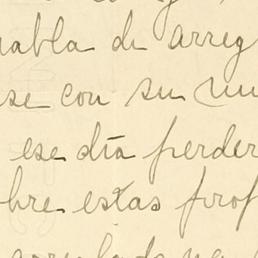 habla de arreg
se con su
ese día perder
bre estas prop